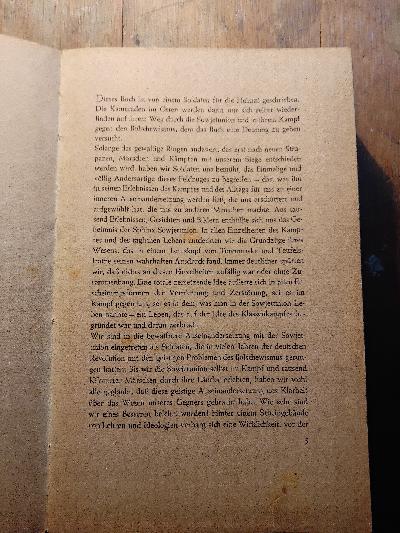 Dieses Buch ist von einem Soldaten für die Heimat geschrieben.
Die Kameraden im Osten werden darin nur sich selber wieder-
finden auf ihrem Weg durch die Sowjetunion und in ihrem Kampf
gegen den Bolschewismus, dem das Buch eine Deutung zu geben
versucht.
Solange das gewaltige Ringen andauert, das erst nach neuen Stra-
pazen, Märschen und Kämpfen mit unserem Siege entschieden
werden wird, haben wir Soldaten uns bemüht, das Einmalige und
völlig Andersartige dieses Feldzuges zu begreifen
in seinen Erlebnissen des Kampfes und des Alltags für uns zu einer
inneren Auseinandersetzung werden ließ, die uns erschüttert und
aufgewühlt hat, die uns zu anderen Menschen machte. Aus tau-
send Erlebnissen, Gesichten und Bildern enthüllte sich uns das Ge-
heimnis der Sphinx Sowjetunion. In allen Einzelheiten des Kamp-
fes und des täglichen Lebens entdeckten wir die Grundzüge ihres
Wesens, das in einem
seinen wahrhaften Ausdruck fand. Immer deutlicher spürten
wir, daß nichts an diesen Einzelheiten zufällig war oder ohne Zu-
sammenhang. Eine totale vernichtende Idee äußerte sich in allen
der Vernichtung und Zerstörung, sei es im
Kampf gegen uns, sei es in dem, was man in der Sowjetunion Le-
ben nannte – ein Leben, das auf der Idee des Klassenkampfes
gründet war und daran zerbrach.
Wir sind in die bewaffnete Auseinandersetzung mit der Sowjet-
union eingetreten als Soldaten, die in vielen Jahren der deutschen
Revolution mit den geistigen Problemen des Bolschewismus gerun-
gen hatten. Bis wir die Sowjetunion selbst in Kampf und tausend
Kilometer Märschen durch ihre Länder erlebten, haben wir wohl
alle geglaubt, daß diese geistige Auseinandersetzung uns Klarheit
über das Wesen unseres Gegners gebracht habe. Wie sehr sind
wir eines Besseren belehrt worden! Hinter einem Scheingebäude
von Lehren und Ideologien verbarg sich eine Wirklichkeit, vor der
5